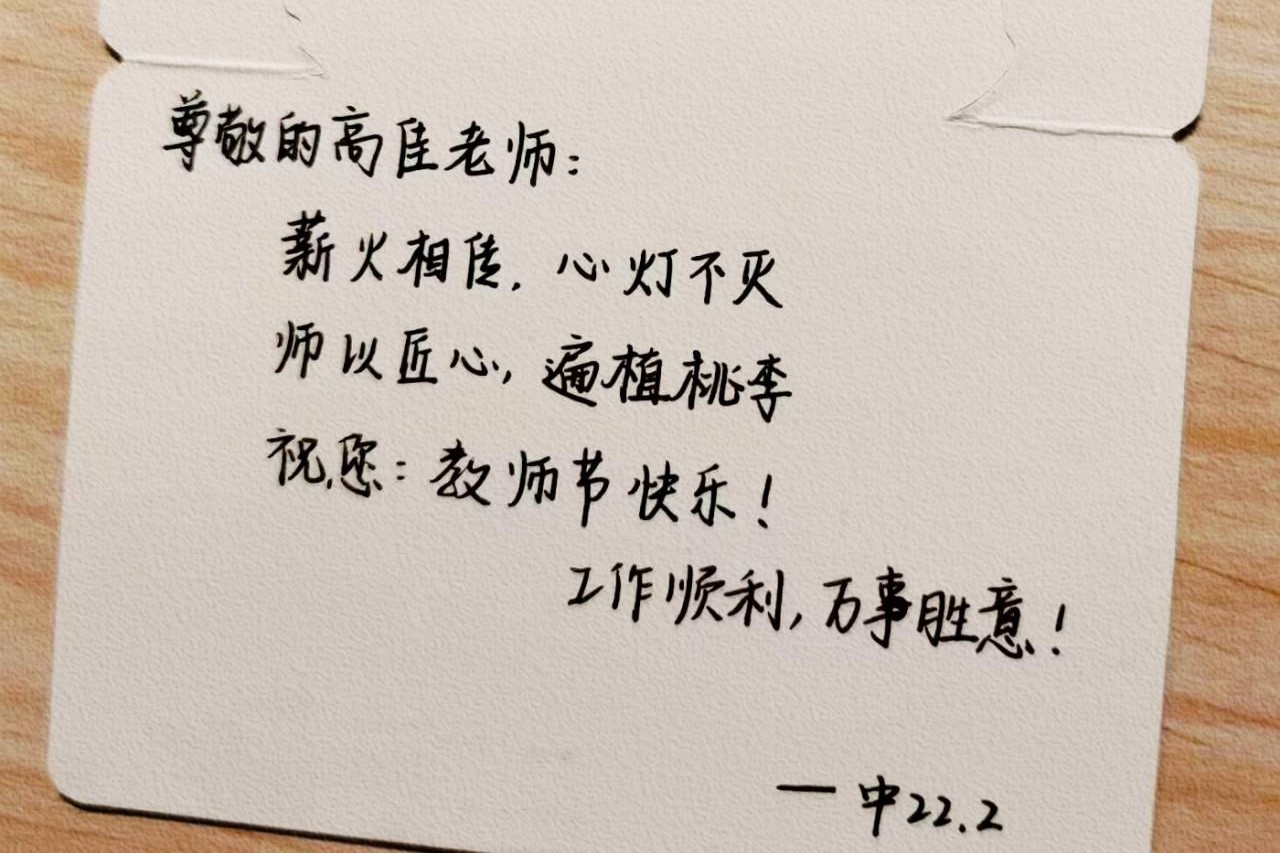 尊敬的高佳老师:
薪火相传,心灯不灭
师以匠心,遍植桃李
祝您:教师节快乐!
工作顺利,万事胜意!
一中22.2